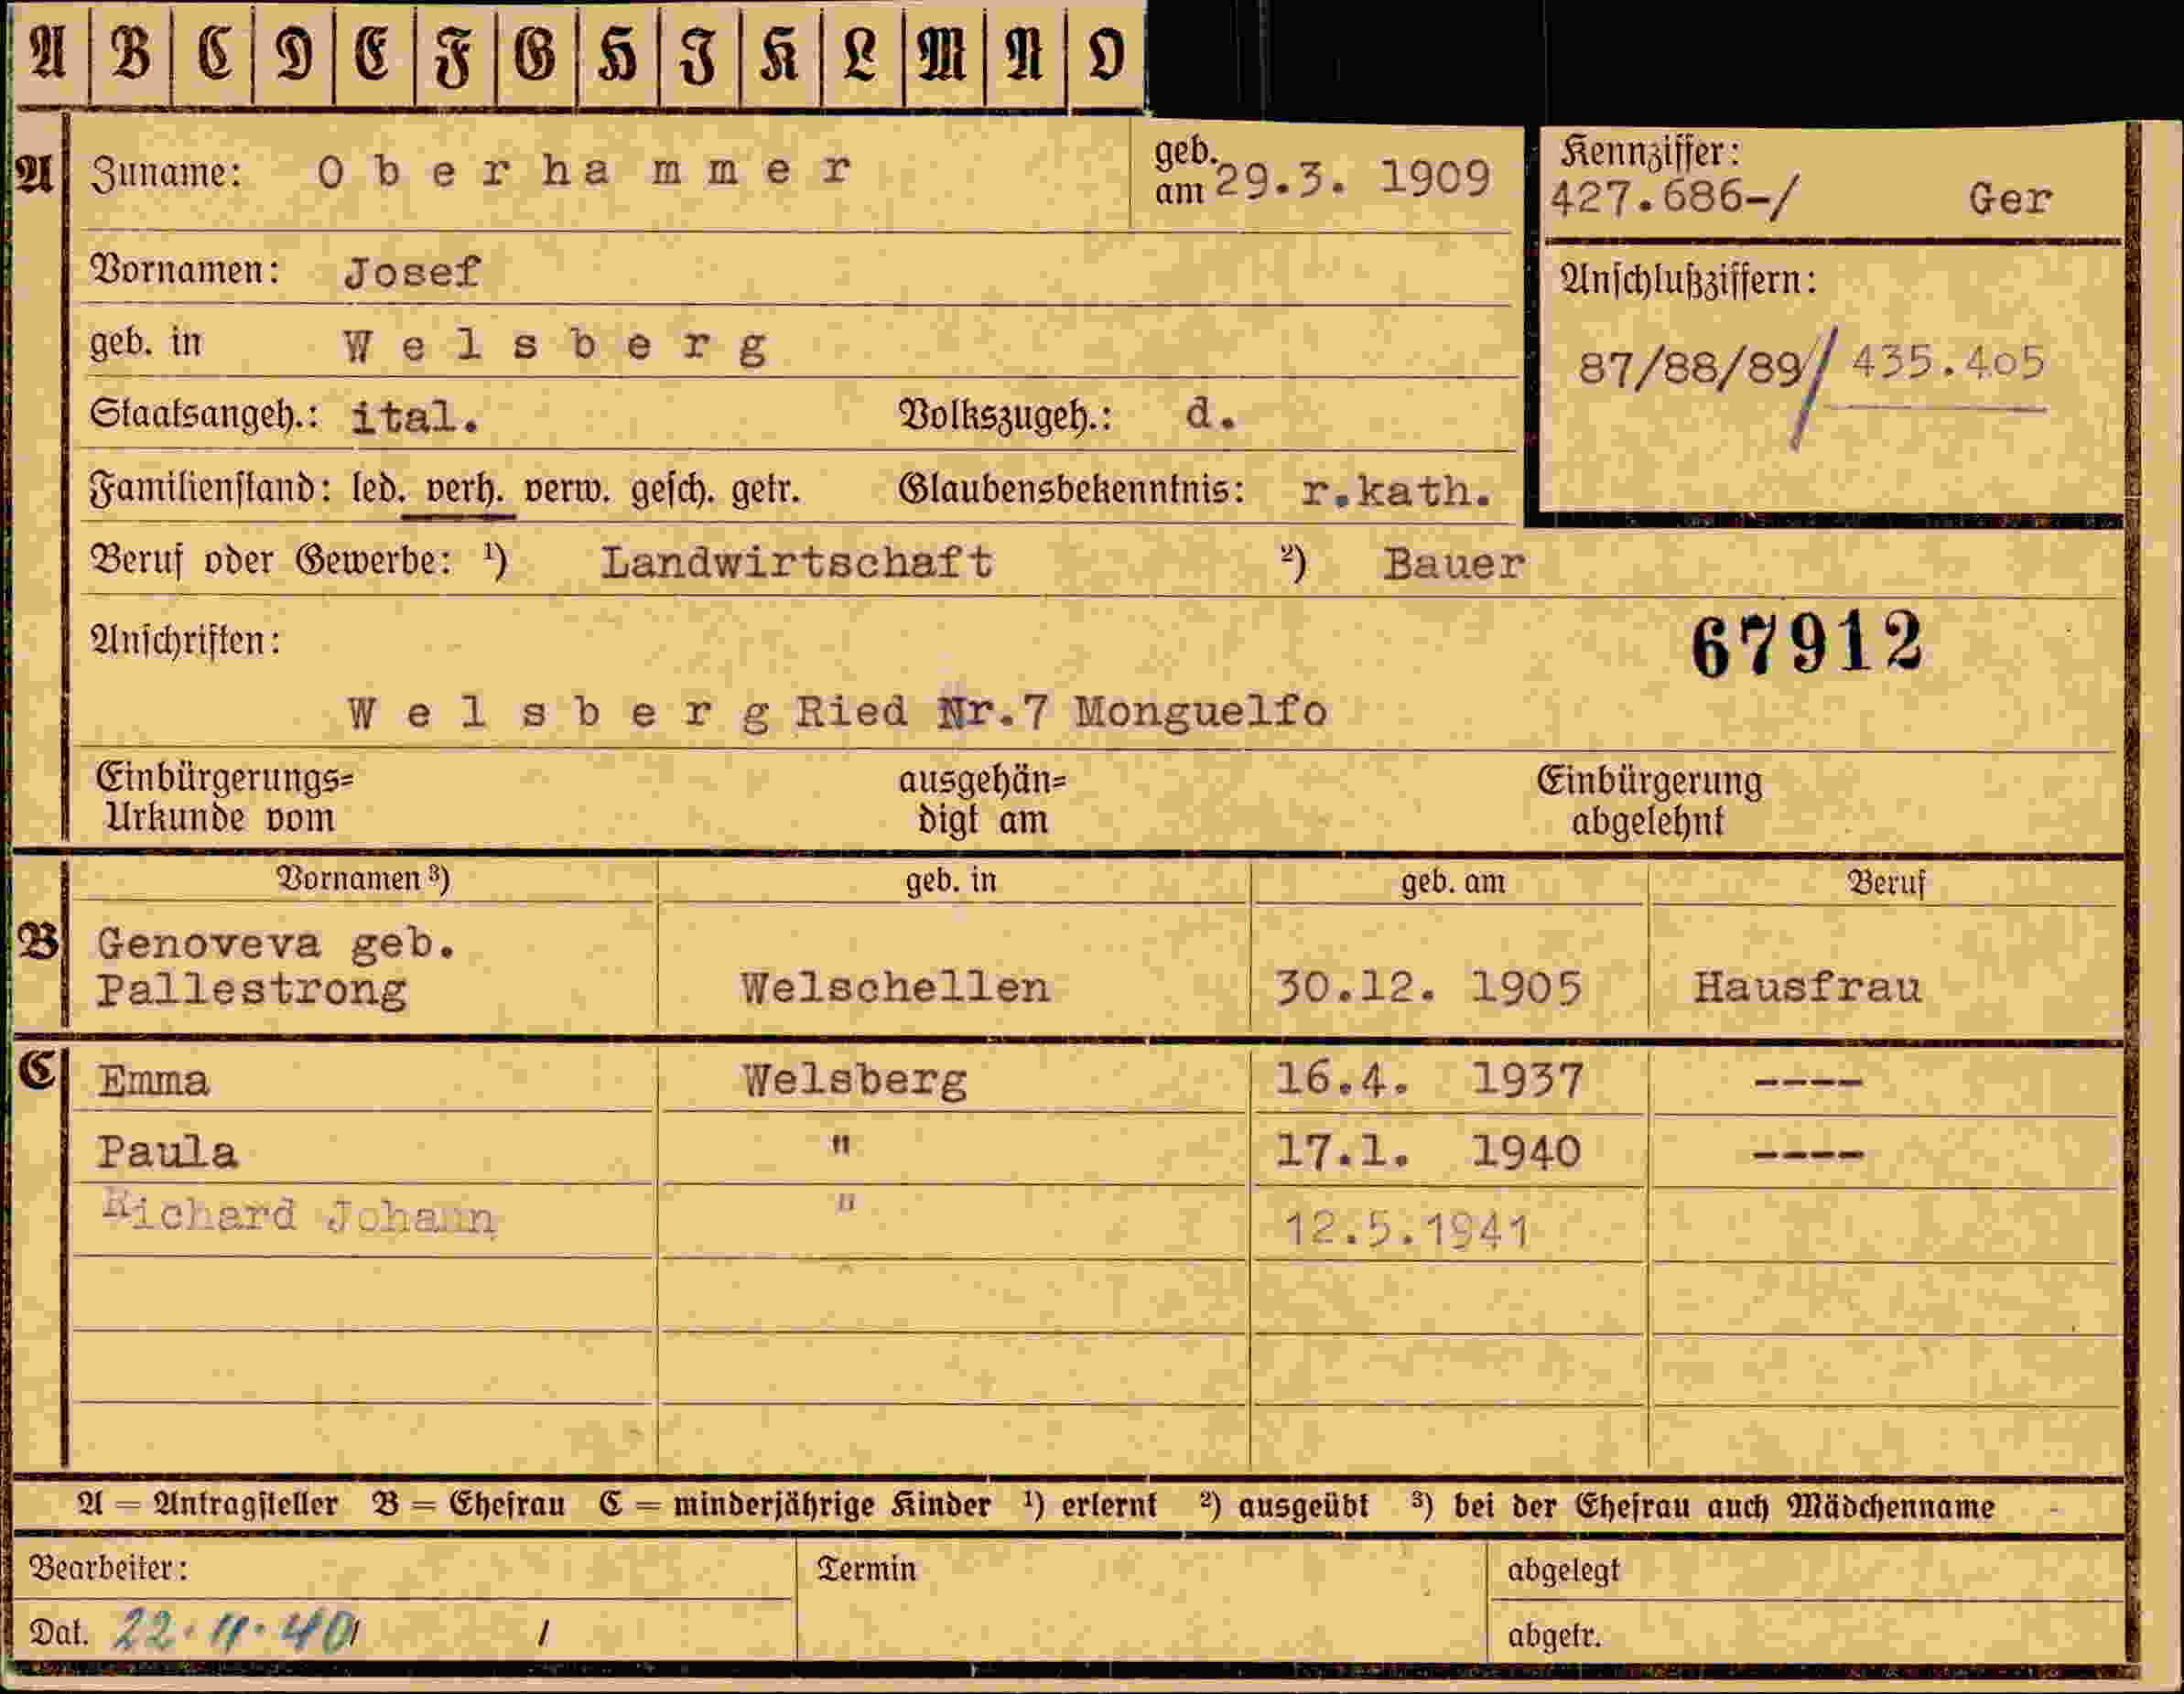 A B C D E F G H I K L M N O
A Zuname: Oberhammer geb. am 29.3. 1909
Kennziffer:
427.686-/ Ger
Vornamen: Josef
Anschlußziffern:
geb. in Welsberg
87/88/89/ 435.405
Staatsangeh.: ital. Volkszugeh.: d.
Familienstand: led. verh. verw. gesch. getr. Glaubensbekenntnis: r.kath.
Beruf oder Gewerbe: ¹) Landwirtschaft ²) Bauer
Anschriften:
67912
Welsberg Ried Nr.7 Monguelfo
Einbürgerungs= ausgehän= Einbürgerung
Urkunde vom digt am abgelehnt
Vornamen ³) geb. in geb. am Beruf
B Genoveva geb.
Pallestrong Welschellen 30.12. 1905 Hausfrau
C Emma Welsberg 16.4. 1937 ----
Paula " 17.1. 1940 ----
Richard Johann " 12.5.1941
A = Antragsteller B = Ehefrau C = minderjährige Kinder ¹) erlernt ²) ausgeübt ³) bei der Ehefrau auch Mädchenname
Bearbeiter: Termin abgelegt
Dat. 22.11.40/ / abgetr.